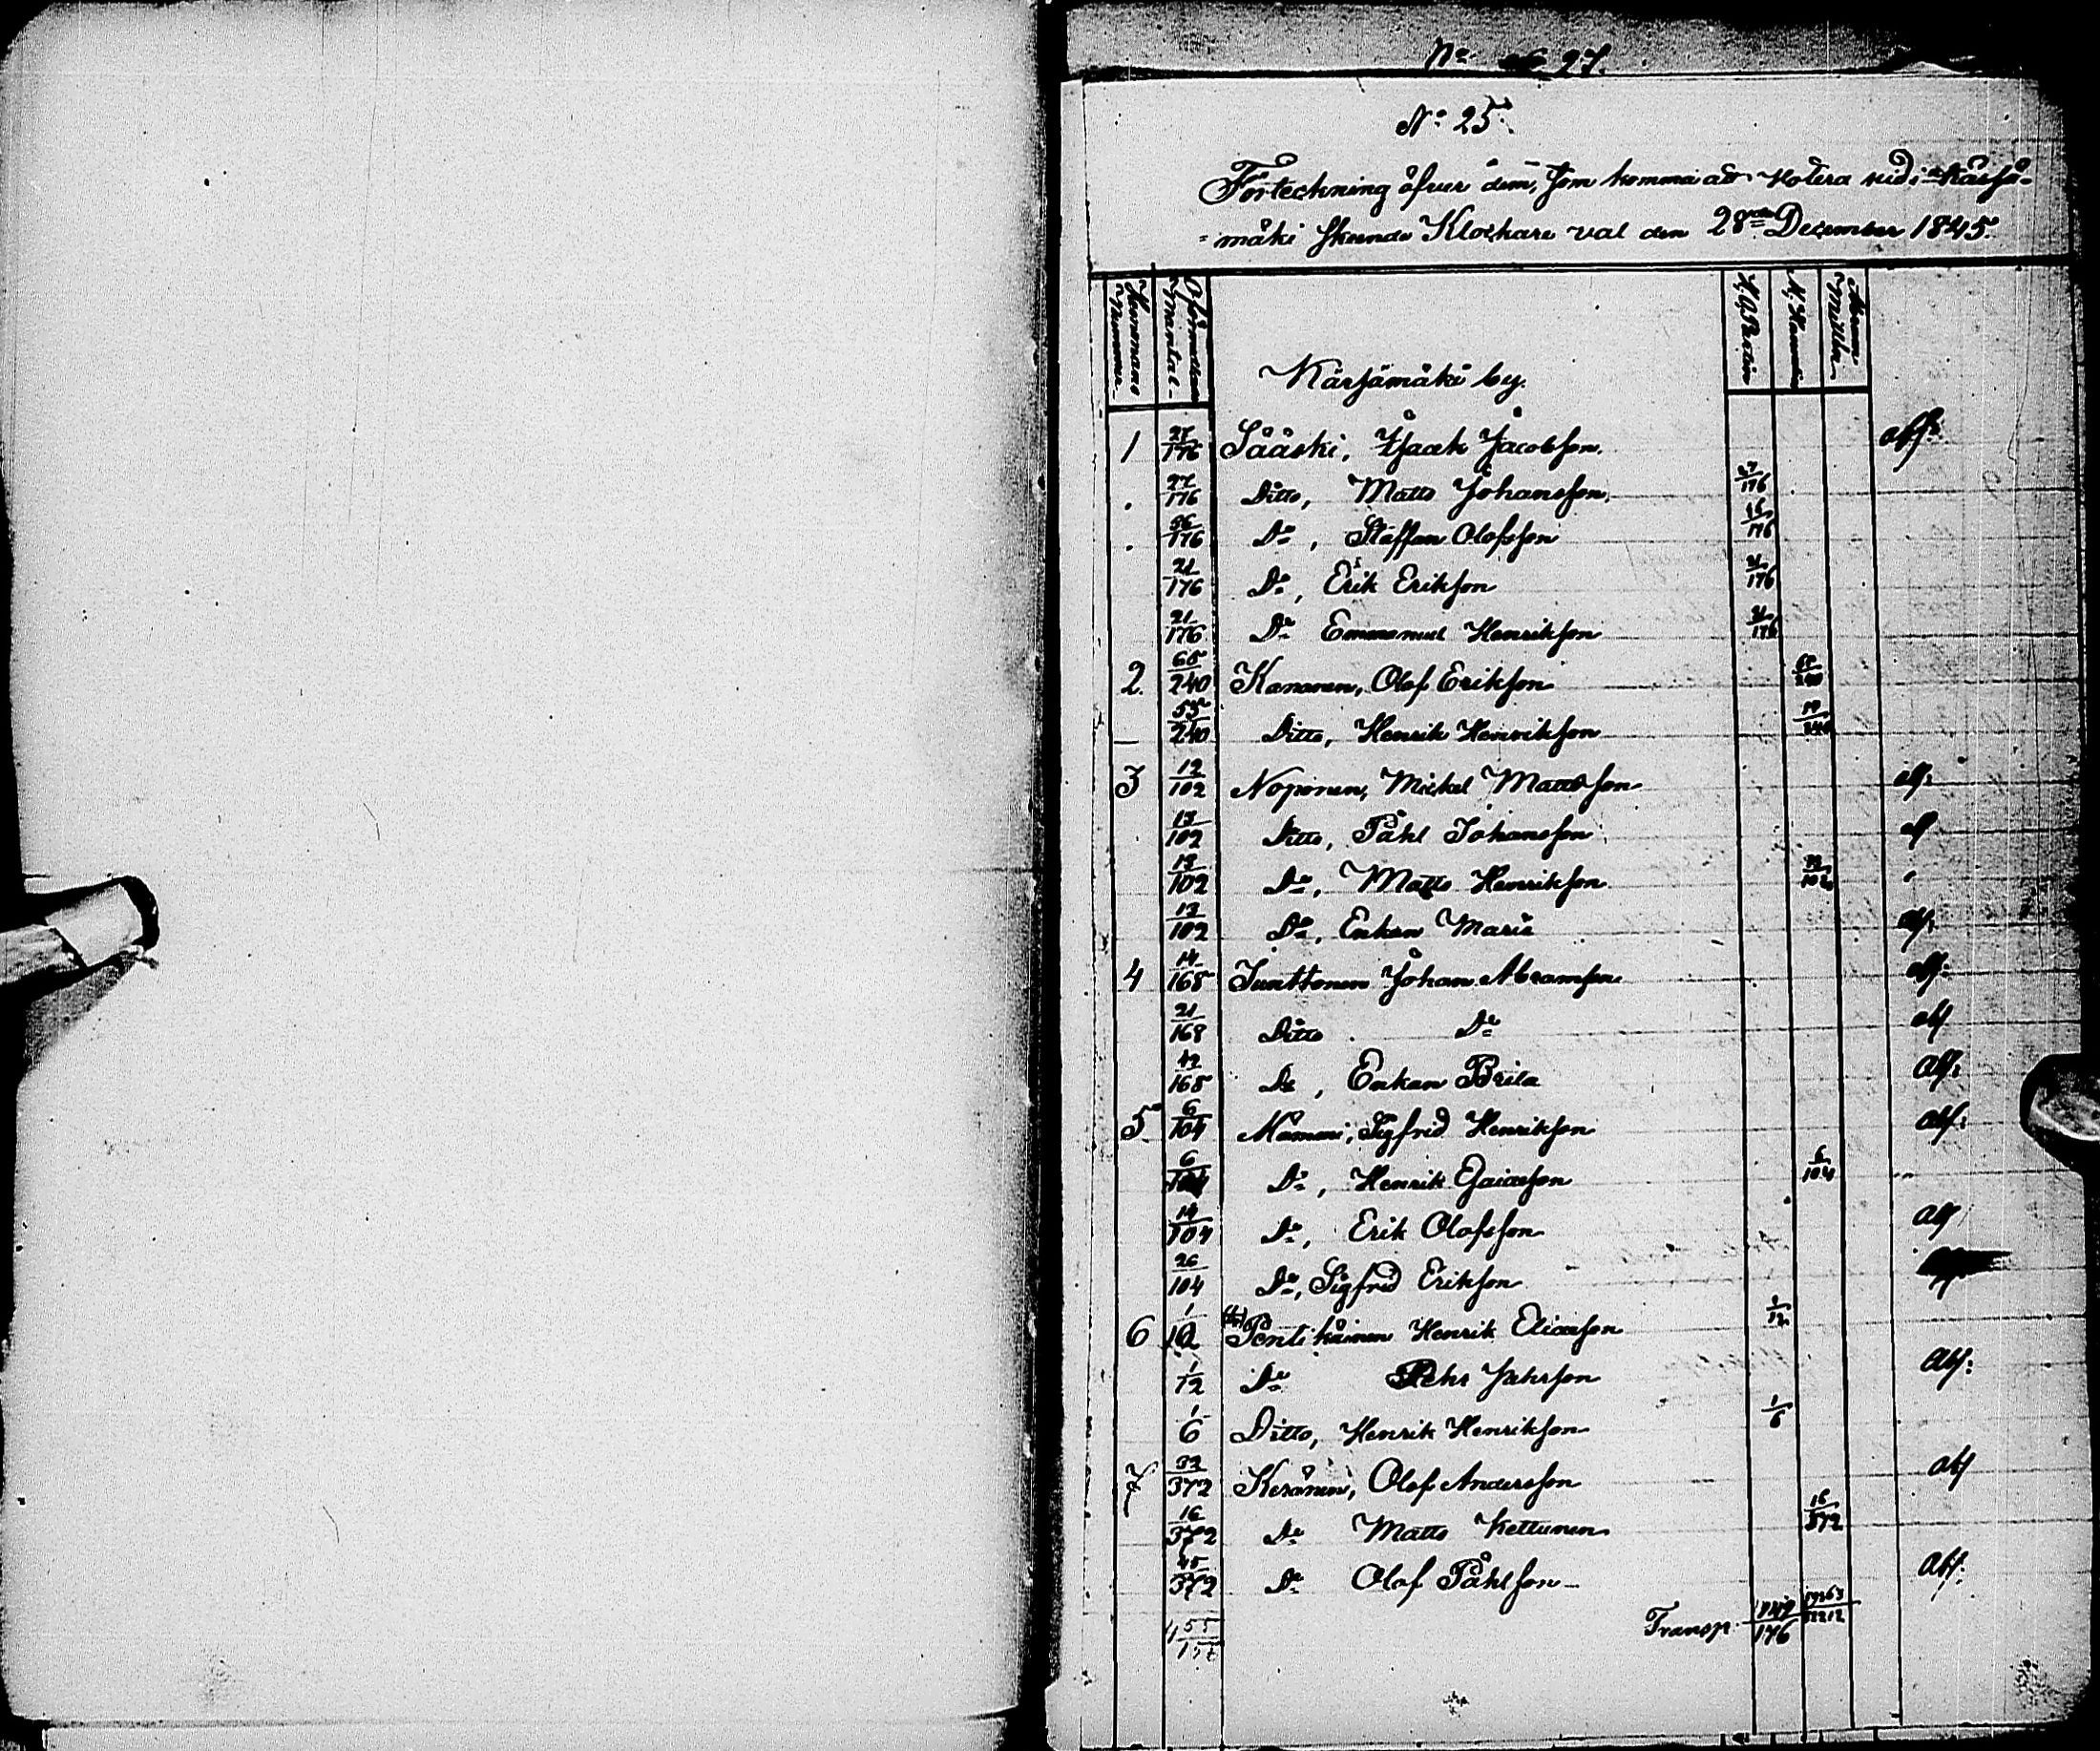 No 27.
No 25.
Förteckning öfver dem, som komma att Votera vid i Kärsä-
mäki skeende Klockare val den 28de December 1845.
Hemmans Nummer
Oförmedladt Mantal
Kärsämäki by.
1 27/176 Sääski, Isaak Jacobsson abs:
. 27/176 Ditto, Matts Johansson 27/176
. 56/176 Do, Staffan Olofsson 176
21/176 Do, Erik Eriksson 21/176
21/176 Do Emanuel Henriksson 21/176
2. 65/240 Kananen, Olof Eriksson 65/240
— 55/240 Ditto, Henrik Henriksson 240
3 12/102 Noponen, Mickel Mattsson abs:
13/102 Ditto, Påhl Johansson abs
13/102 Do, Matts Henriksson 13/102
13/102 Do, Enkan Maria abs:
4 14/168 Junttonen Johan Abramsson abs:
21/168 Ditto Do abs
42/168 Do, Enkan Brita abs:
5 6/104 Mammi, Sigfrid Henriksson abs:
6/104 Do, Henrik Esaiasson 6/104
14/104 Do, Erik Olofsson abs
26/104 Do, Sigfrid Eriksson
6 1/12 Pentikäinen Henrik Eliasson 1/12
1/12 Do Pehr Pehrsson abs:
1/6 Ditto, Henrik Henriksson 1/6
7 32/372 Keränen, Olof Andersson abs
16/372 Do Matts Kettunen 16/372
45/372 Do Olof Påhlsson abs:
Transp. 176